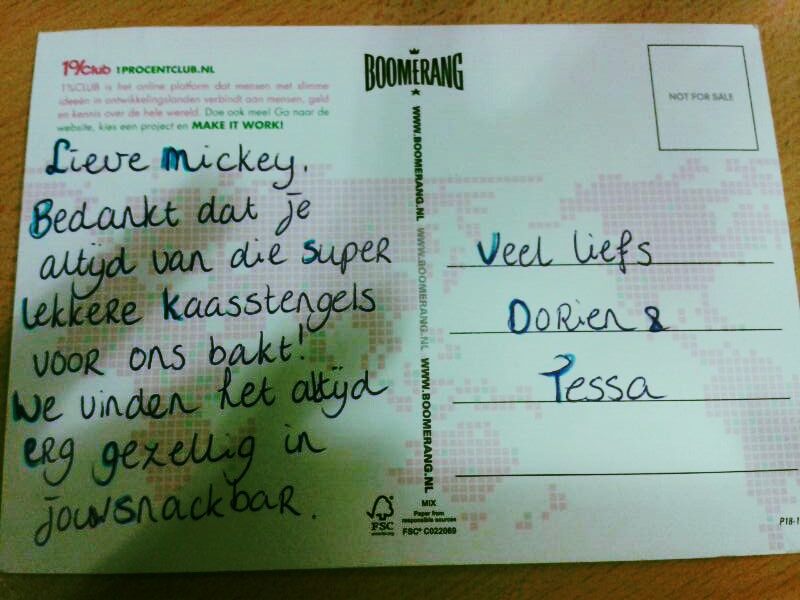 1%Club 1PROCENTCLUB.NL
1%CLUB is het online platform dat mensen met slimme
ideeën in ontwikkelingslanden verbindt aan mensen, geld
en kennis over de hele wereld. Doe ook mee! Ga naar de
website, kies een project en MAKE IT WORK!
Lieve Mickey,
Bedankt dat je
altijd van die super
lekkere kaasstengels
voor ons bakt!
We vinden het altijd
erg gezellig in
jouw snackbar.
BOOMERANG
WWW.BOOMERANG.NL WWW.BOOMERANG.NL WWW.BOOMERANG.NL
NOT FOR SALE
Veel liefs
Dorien &
Tessa
FSC
MIX
Paper from
responsible sources
FSC® C022069
P18-1